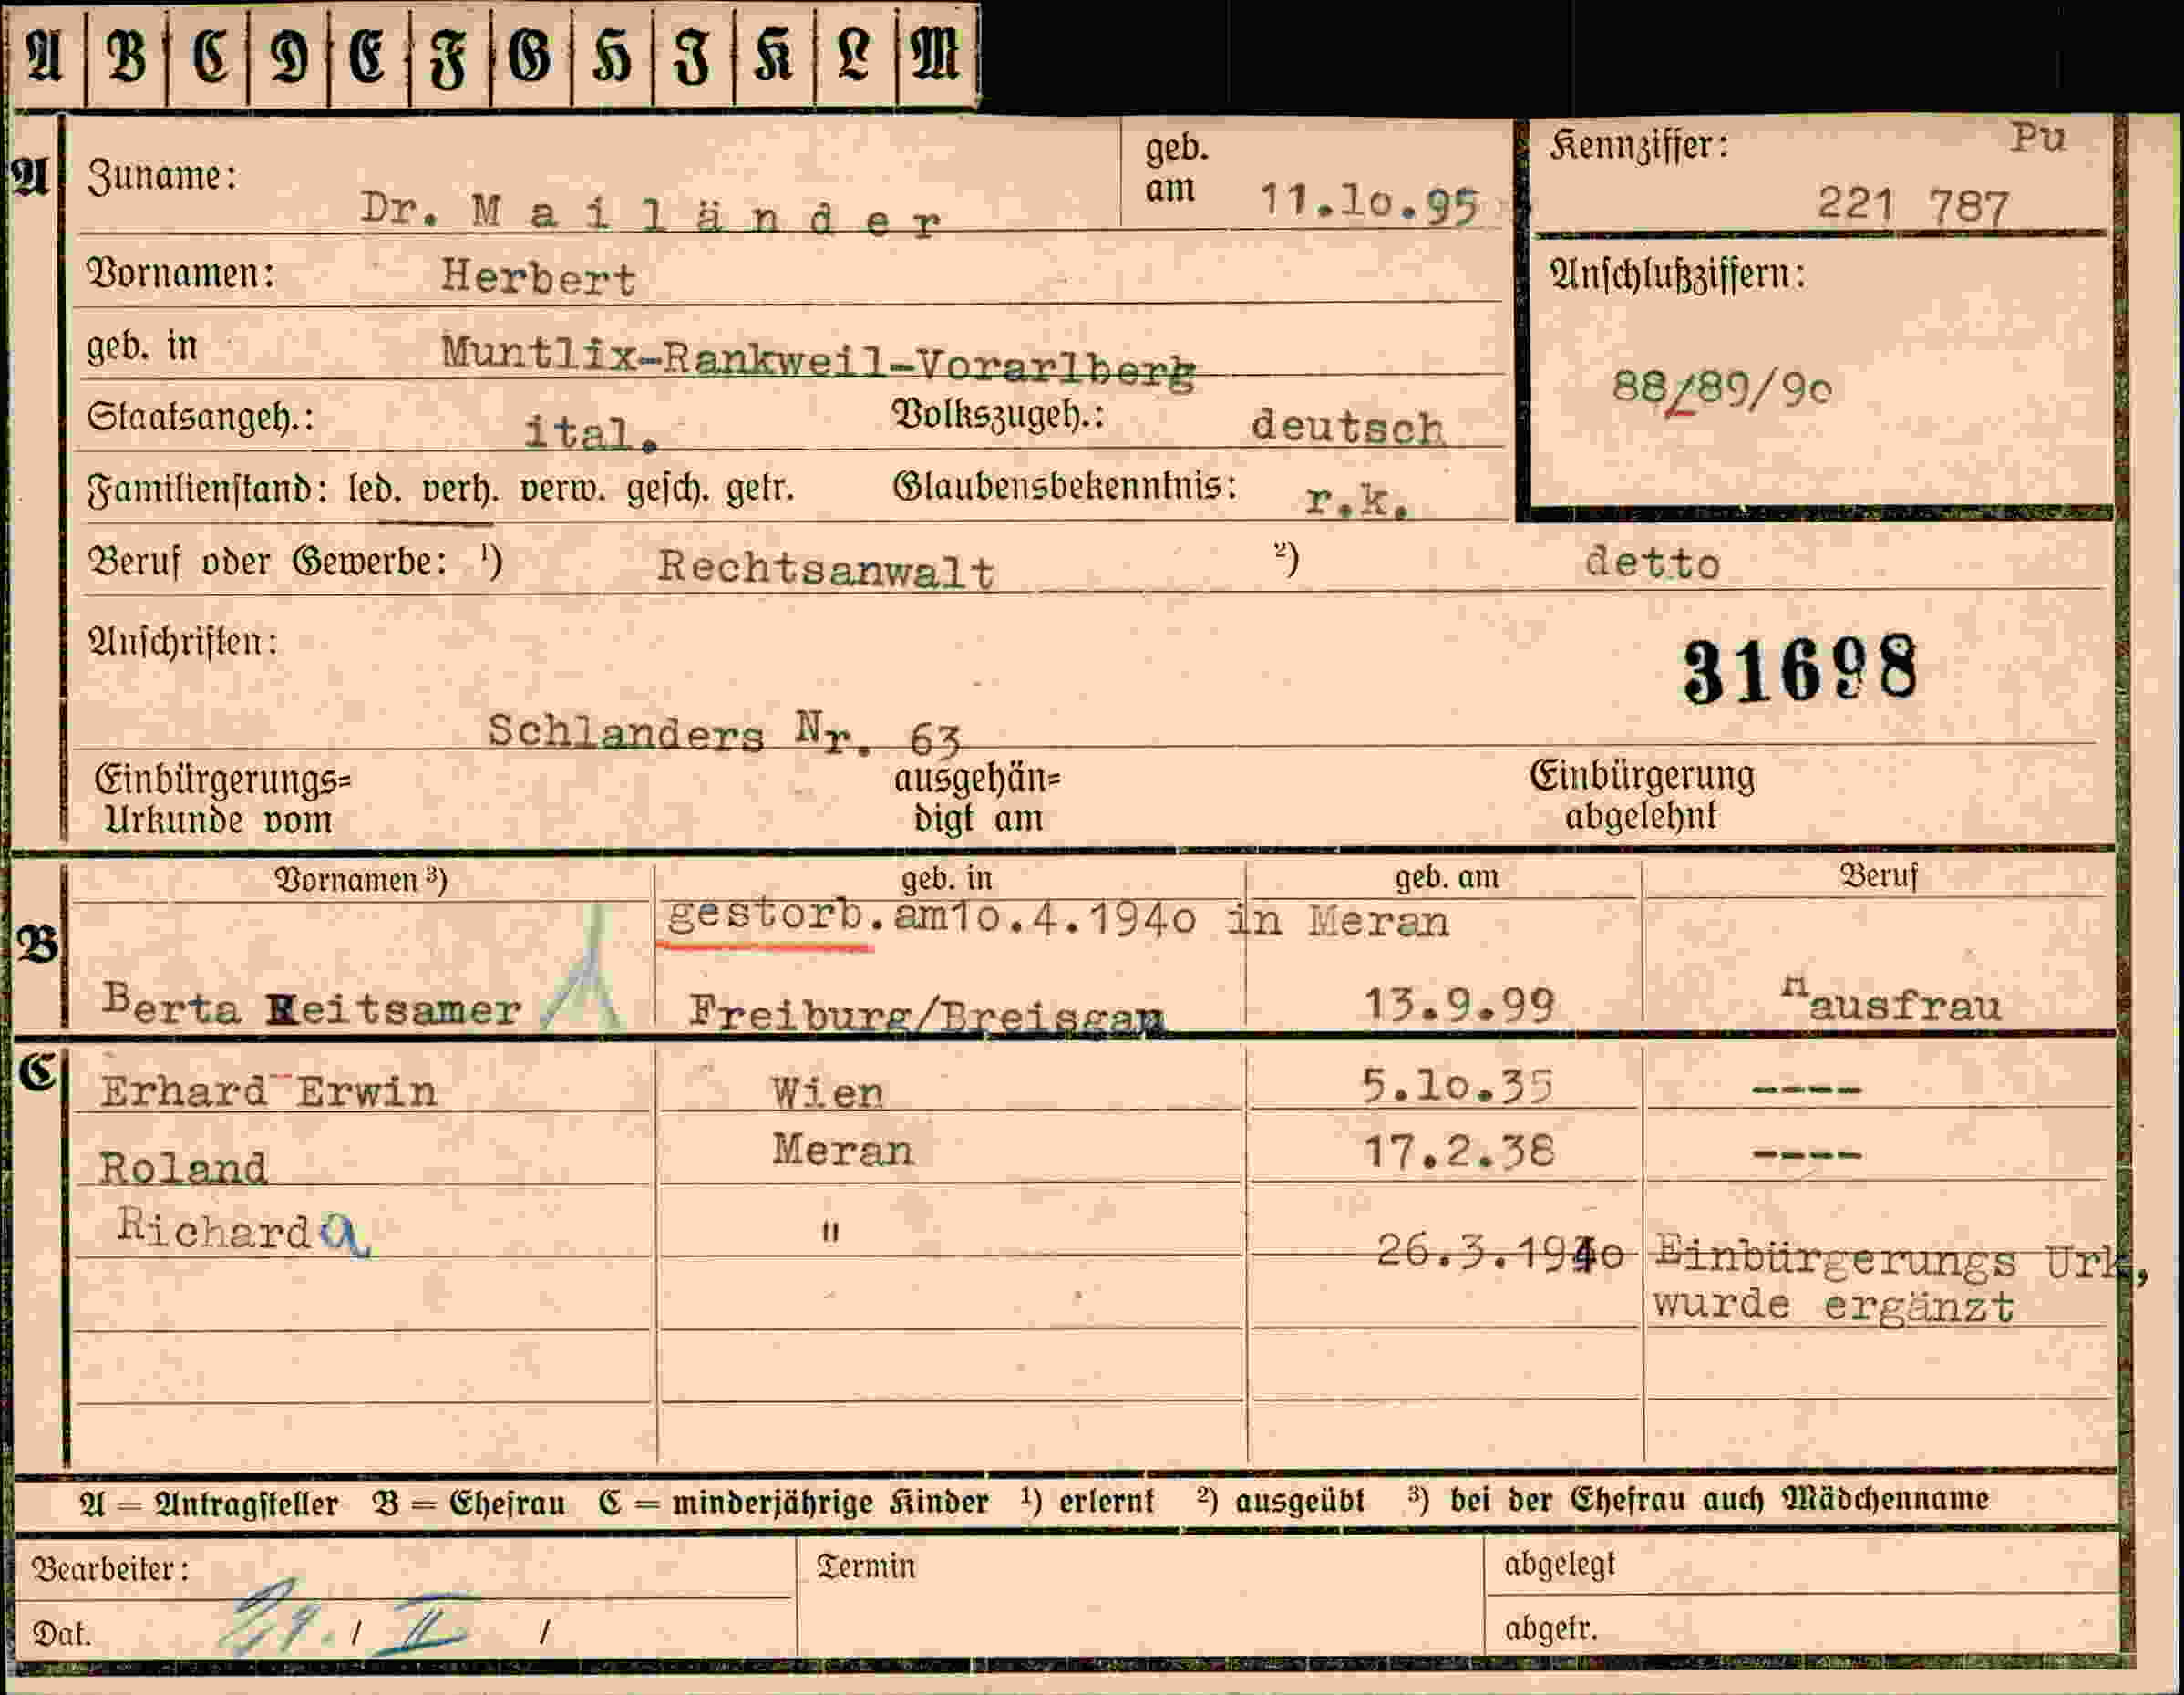 A B C D E F G H J K L M
A Zuname: Dr. M a i l ä n d e r geb. am 11.10.95
Kennziffer: Pu
221 787
Vornamen: Herbert
Anschlußziffern:
88/89/90
geb. in Muntlix-Rankweil-Vorarlberg
Staatsangeh.: ital. Volkszugeh.: deutsch
Familienstand: led. verh. verw. gesch. getr. Glaubensbekenntnis: r.k.
Beruf oder Gewerbe: ¹) Rechtsanwalt ²) detto
Anschriften:
31698
Schlanders Nr. 63
Einbürgerungs= ausgehän= Einbürgerung
Urkunde vom digt am abgelehnt
Vornamen ³) geb. in geb. am Beruf
gestorb.am10.4.1940 in Meran
B Berta Reitsamer Freiburg/Breisgau 13.9.99 Hausfrau
C Erhard Erwin Wien 5.10.35 ----
Roland Meran 17.2.38 ----
Richarda " 26.3.1940 Einbürgerungs Urk,
wurde ergänzt
A = Antragsteller B = Ehefrau C = minderjährige Kinder ¹) erlernt ²) ausgeübt ³) bei der Ehefrau auch Mädchenname
Bearbeiter: Termin abgelegt
Dat. 29. / II / abgetr.